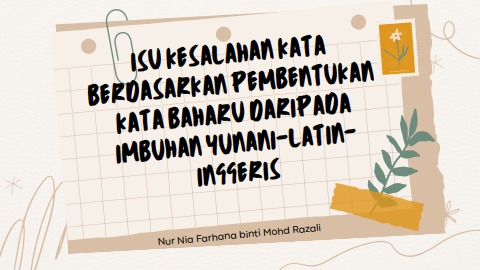 ISU KESALAHAN KATA
BERDASARKAN PEMBENTUKAN
KATA BAHARU DARIPADA
IMBUHAN YUNANI-LATIN-
INGGERIS
Nur Nia Farhana binti Mohd Razali